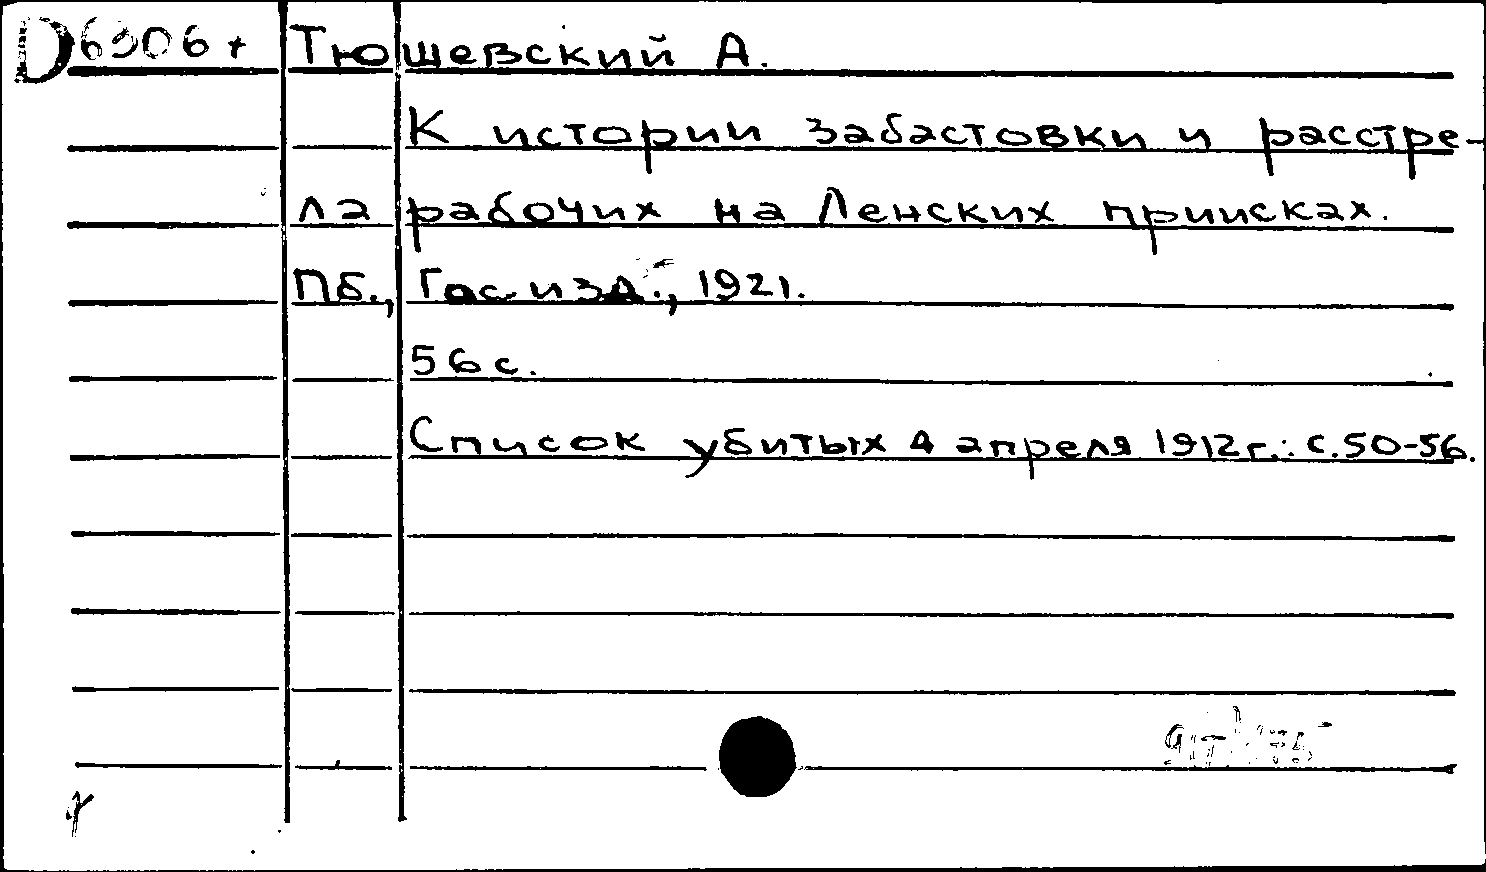 D6306+ Тюшевский А.
К истории забастовки и расстре-
ла рабочих на Ленских приисках.
Пб., Гос. изд., 1921.
56 с.
Список убитых 4 апреля 1912г.: с.50-56.